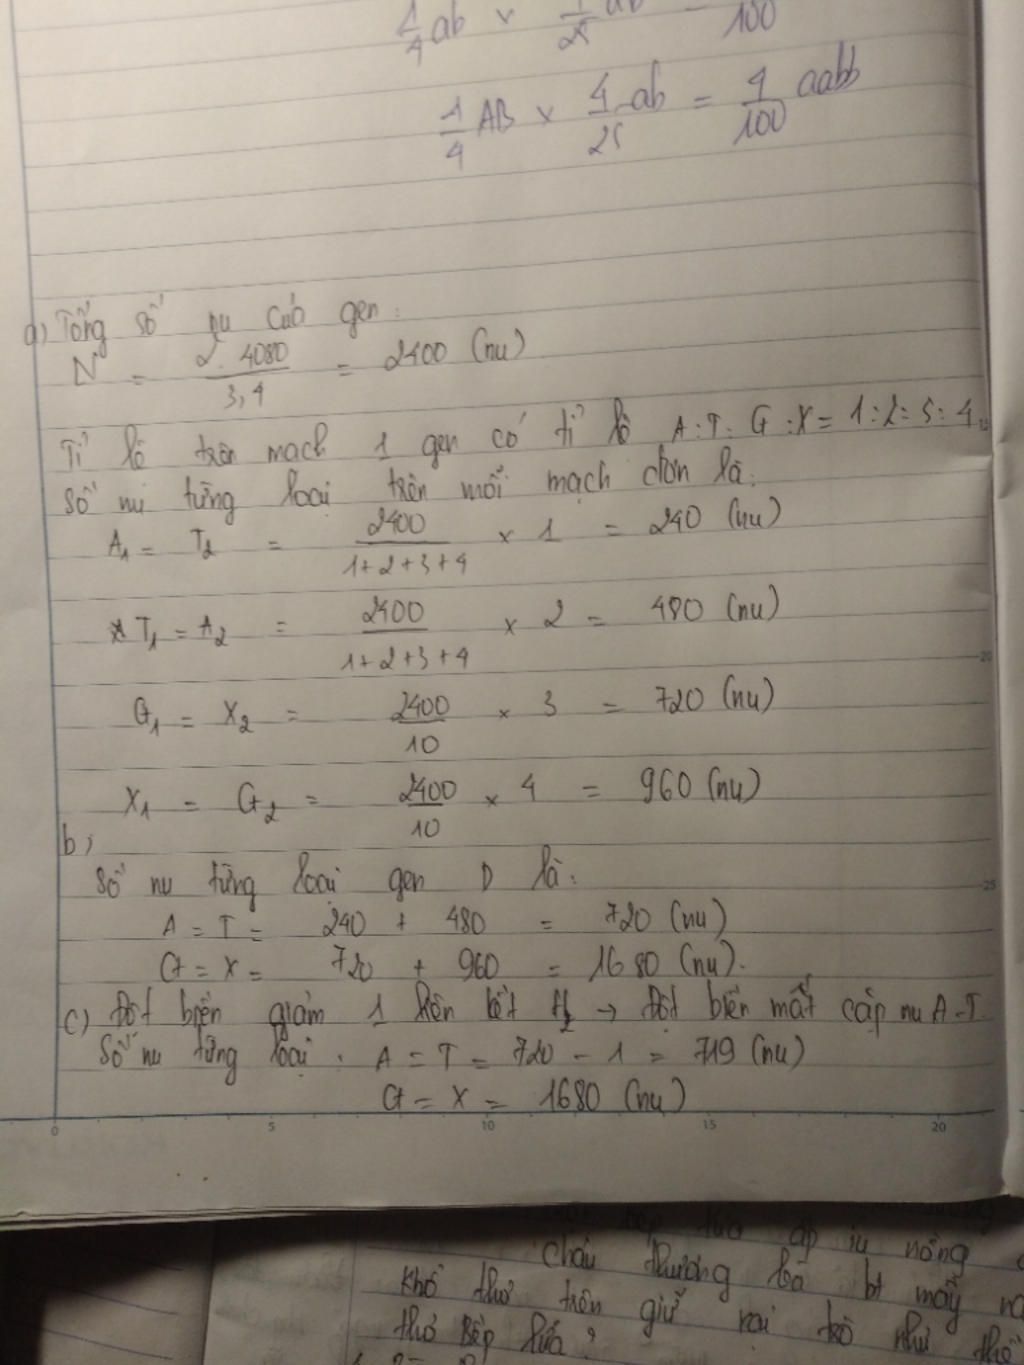 1/4 ab × 1/25 ab = /100
1/4 AB × 4/25 ab = 4/100 aabb
a) Tổng số nu của gen:
N = 2.4080/3,4 = 2400 (nu)
Tỉ lô trên mạch 1 gen có tỉ lô A:T:G:X = 1:2:3:4
Số nu từng loại trên mỗi mạch đơn là:
A1 = T2 = 2400/1+2+3+4 × 1 = 240 (nu)
T1 = A2 = 2400/1+2+3+4 × 2 = 480 (nu)
G1 = X2 = 2400/10 × 3 = 720 (nu)
X1 = G2 = 2400/10 × 4 = 960 (nu)
b)
Số nu từng loại gen D là:
A = T = 240 + 480 = 720 (nu)
G = X = 720 + 960 = 1680 (nu).
c) Đột biến giảm 1 liên kết H2 → Đột biến mất cặp nu A-T.
Số nu từng loại: A = T = 720 - 1 = 719 (nu)
G = X = 1680 (nu)
0 5 10 15 20
20
25
bếp lửa ấp iu nồng
cháu thương bà bt mấy
Khổ thơ trên giữ vai trò như thế
thơ Bếp lửa?